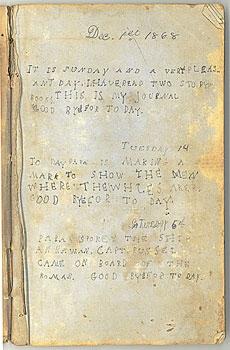 Dec. 1st 1868
IT IS SUNDAY AND A VERY PLEAS
ANT DAY. I HAVE READ TWO STORY
BOOKS. THIS IS MY JOURNAL
GOOD BYE FOR TO DAY.
TUESDAY 14
TO DAY PAPA IS MAKING A
MARK TO SHOW THE MEN
WHERE THE WHLES ARE.
GOOD BYE FOR TO DAY.
6th
PAPA SPOKE THE SHI
CAPT.
CAME ON BOARD OF THE
ROMAN. GOOD BYE FOR TO DAY.